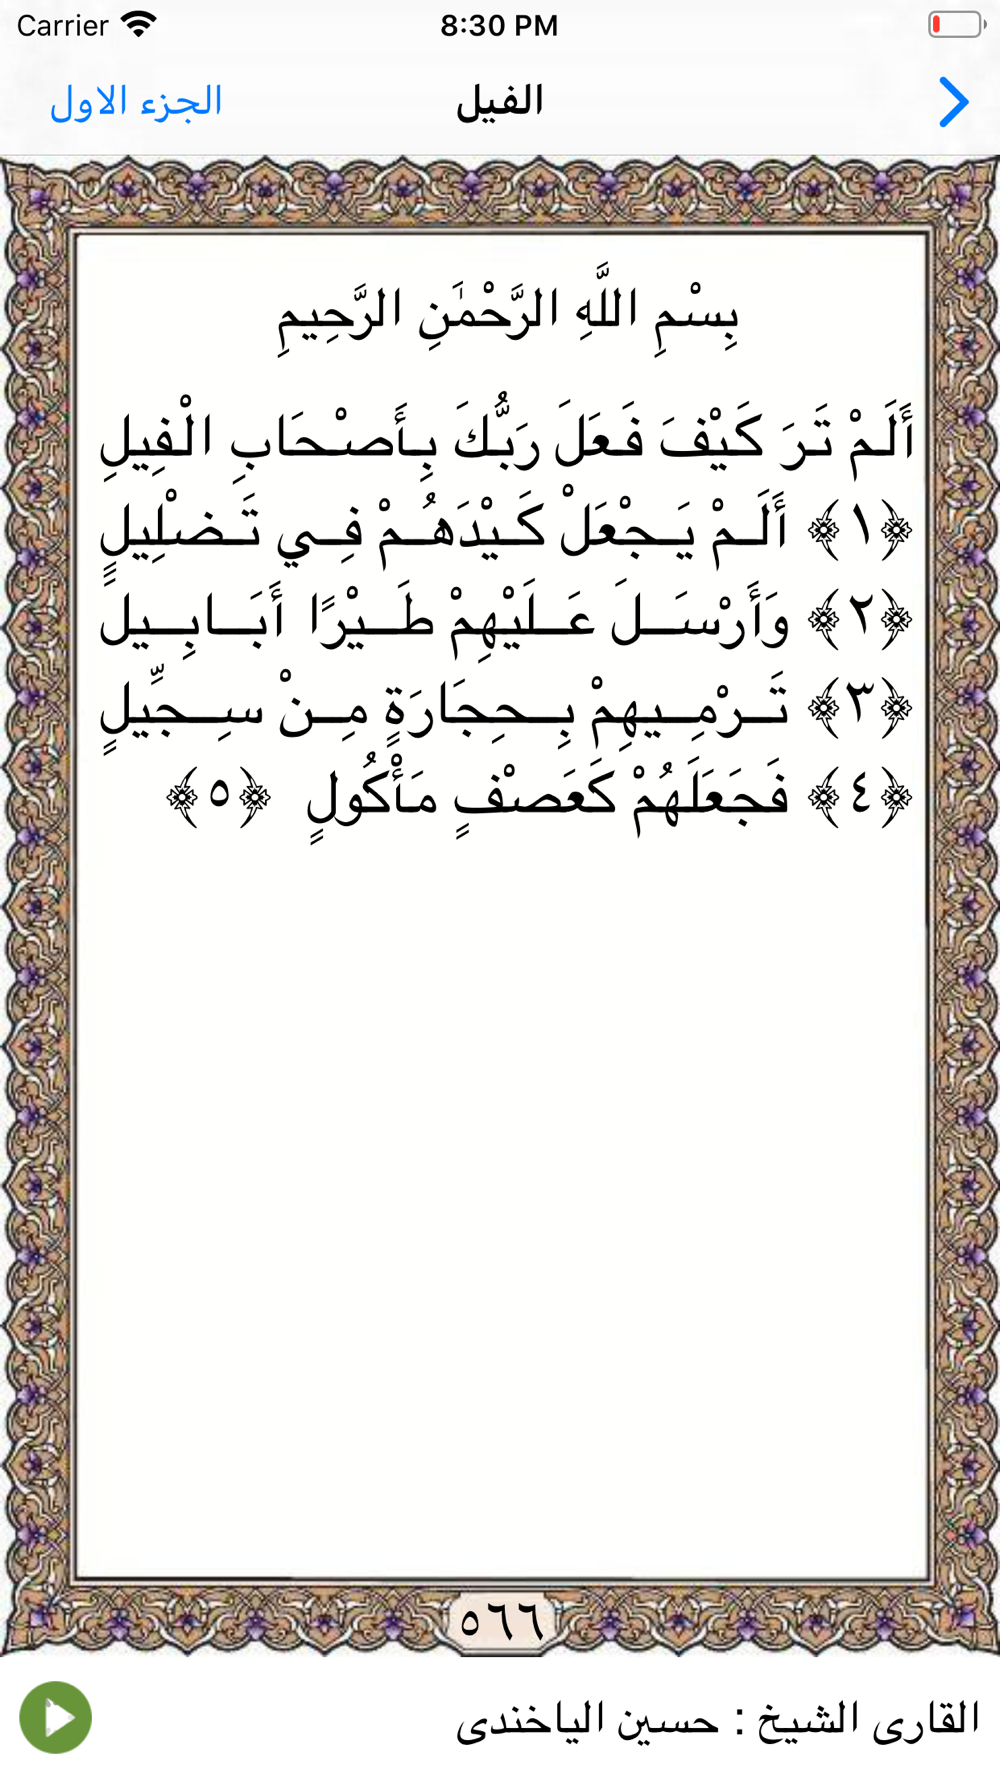 Carrier 8:30 PM
الجزء الاول الفيل
بِسْمِ اللَّهِ الرَّحْمَٰنِ الرَّحِيمِ
أَلَمْ تَرَ كَيْفَ فَعَلَ رَبُّكَ بِأَصْحَابِ الْفِيلِ
﴿١﴾ أَلَمْ يَجْعَلْ كَيْدَهُمْ فِي تَضْلِيلٍ
﴿٢﴾ وَأَرْسَلَ عَلَيْهِمْ طَيْرًا أَبَابِيلَ
﴿٣﴾ تَرْمِيهِمْ بِحِجَارَةٍ مِنْ سِجِّيلٍ
﴿٤﴾ فَجَعَلَهُمْ كَعَصْفٍ مَأْكُولٍ ﴿٥﴾
٥٦٦
القارى الشيخ : حسين الياخندى